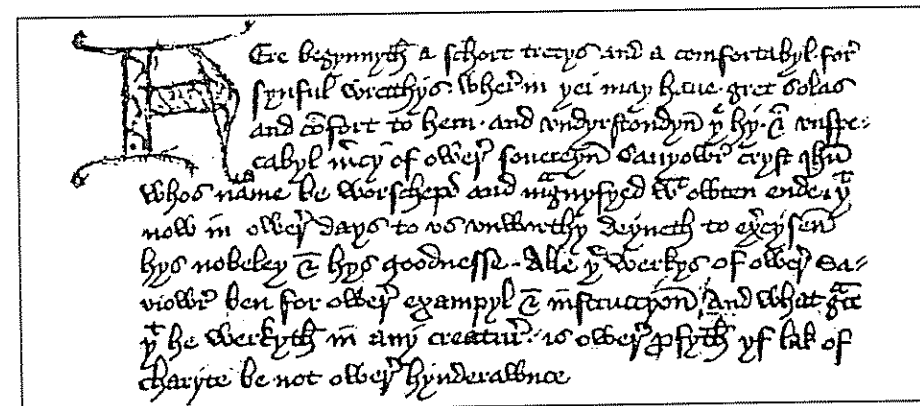 HEre begynnyth a schort tretys and a comfortabyl for
synful wrecchys. wher in þei may haue gret solas
and cõfort to hem. and vndyrstondyn þe hy. & vnspe-
cabyl m̃cy of ower souereyn Sauyowr cryst Ihũ
whos name be worschepd and magnyfyed wt owten ende. þt
now in ower days to vs vnworthy deyneth to exĉysen
hys nobeley & hys goodnesse. Alle þe werkys of ower Sa-
uiowr ben for ower exampyl & instruccyon. And what grce
þt he werkyth in any creatur. is ower ꝓfyth yf lak of
charyte be not ower hynderawnce